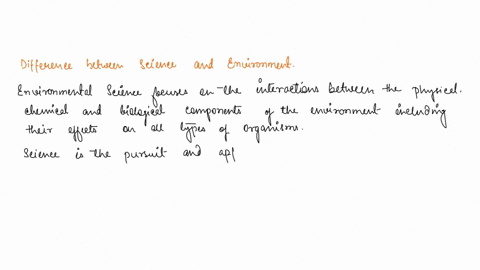 Difference between Science and Environment.
Environmental Science focuses on the interactions between the physical.
chemical and biological components of the environment including
their effects on all types of organisms.
Science is the pursuit and apl